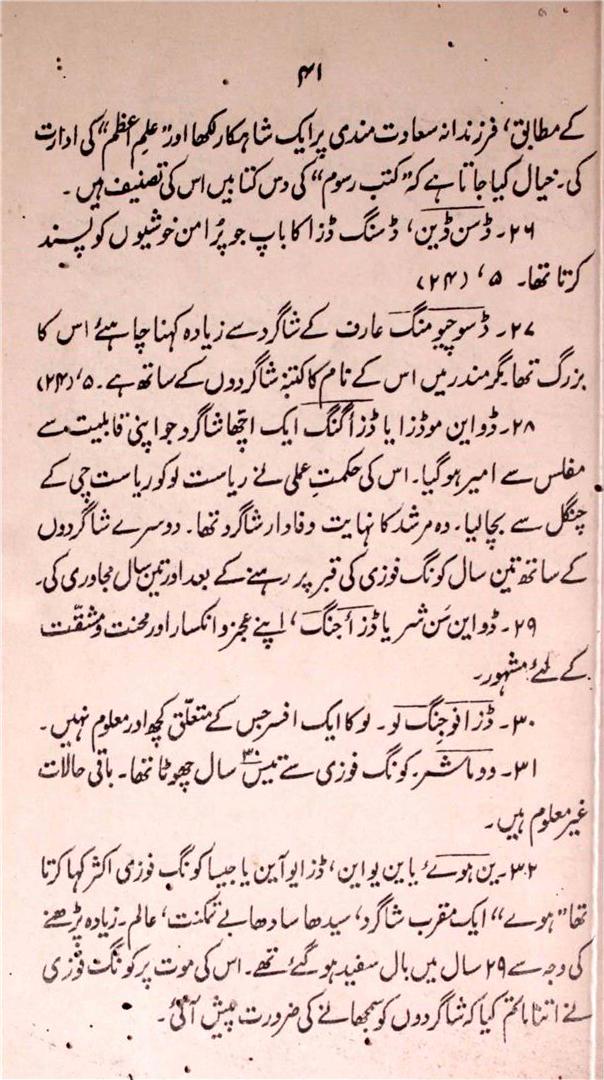 ۴۱
کے مطابق، فرزندانہ سعادت مندی پر ایک شاہکار لکھا اور "علمِ اعظم" کی ادارت
کی۔ خیال کیا جاتا ہے کہ "کتب رسوم" کی دس کتابیں اس کی تصنیف ہیں۔
۲۶۔ ڈسن ڈین، ڈسنگ ڈزا کا باپ جو پُر امن خوشیوں کو پسند
کرتا تھا۔ ۵، (۲۴)
۲۷۔ ڈسوچیومنگ عارف کے شاگرد سے زیادہ کہنا چاہیئے اس کا
بزرگ تھا۔ مگر مندر میں اس کے نام کا کتبہ شاگردوں کے ساتھ ہے۔ ۵، (۲۴)
۲۸۔ ڈواین موڈزا یا ڈزاگنگ ایک اچھا شاگرد جو اپنی قابلیت سے
مفلس سے امیر ہو گیا۔ اس کی حکمتِ عملی نے ریاست لو کو ریاست چی کے
چنگل سے بچا لیا۔ وہ مرشد کا نہایت وفادار شاگرد تھا۔ دوسرے شاگردوں
کے ساتھ تین سال کونگ فوزی کی قبر پر رہنے کے بعد اور تین سال مجاوری کی۔
۲۹۔ ڈواین سَن شر یا ڈز أجنگ، اپنے عجز و انکسار اور محنت و مشقّت
کے لئے مشہور۔
۳۰۔ ڈزافوجنگ لو۔ لو کا ایک افسر جس کے متعلّق کچھ اور معلوم نہیں۔
۳۱۔ دوماشر۔ کونگ فوزی سے تیس ۳۰ سال چھوٹا تھا۔ باقی حالات
غیر معلوم ہیں۔
۳۲۔ ین ہوئے یا ین یواین، ڈزایوآین یا جیسا کونگ فوزی اکثر کہا کرتا
تھا "ہوے" ایک مقرب شاگرد، سیدھا سادھا بے تمکنت، عالم۔ زیادہ پڑھنے
کی وجہ سے ۲۹ سال میں بال سفید ہو گئے تھے۔ اس کی موت پر کونگ فوزی
نے اتنا ماتم کیا کہ شاگردوں کو سمجھانے کی ضرورت پیش آئی۔